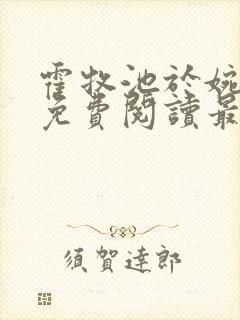 霍牧池於婉
免費閱讀最
須賀達郎